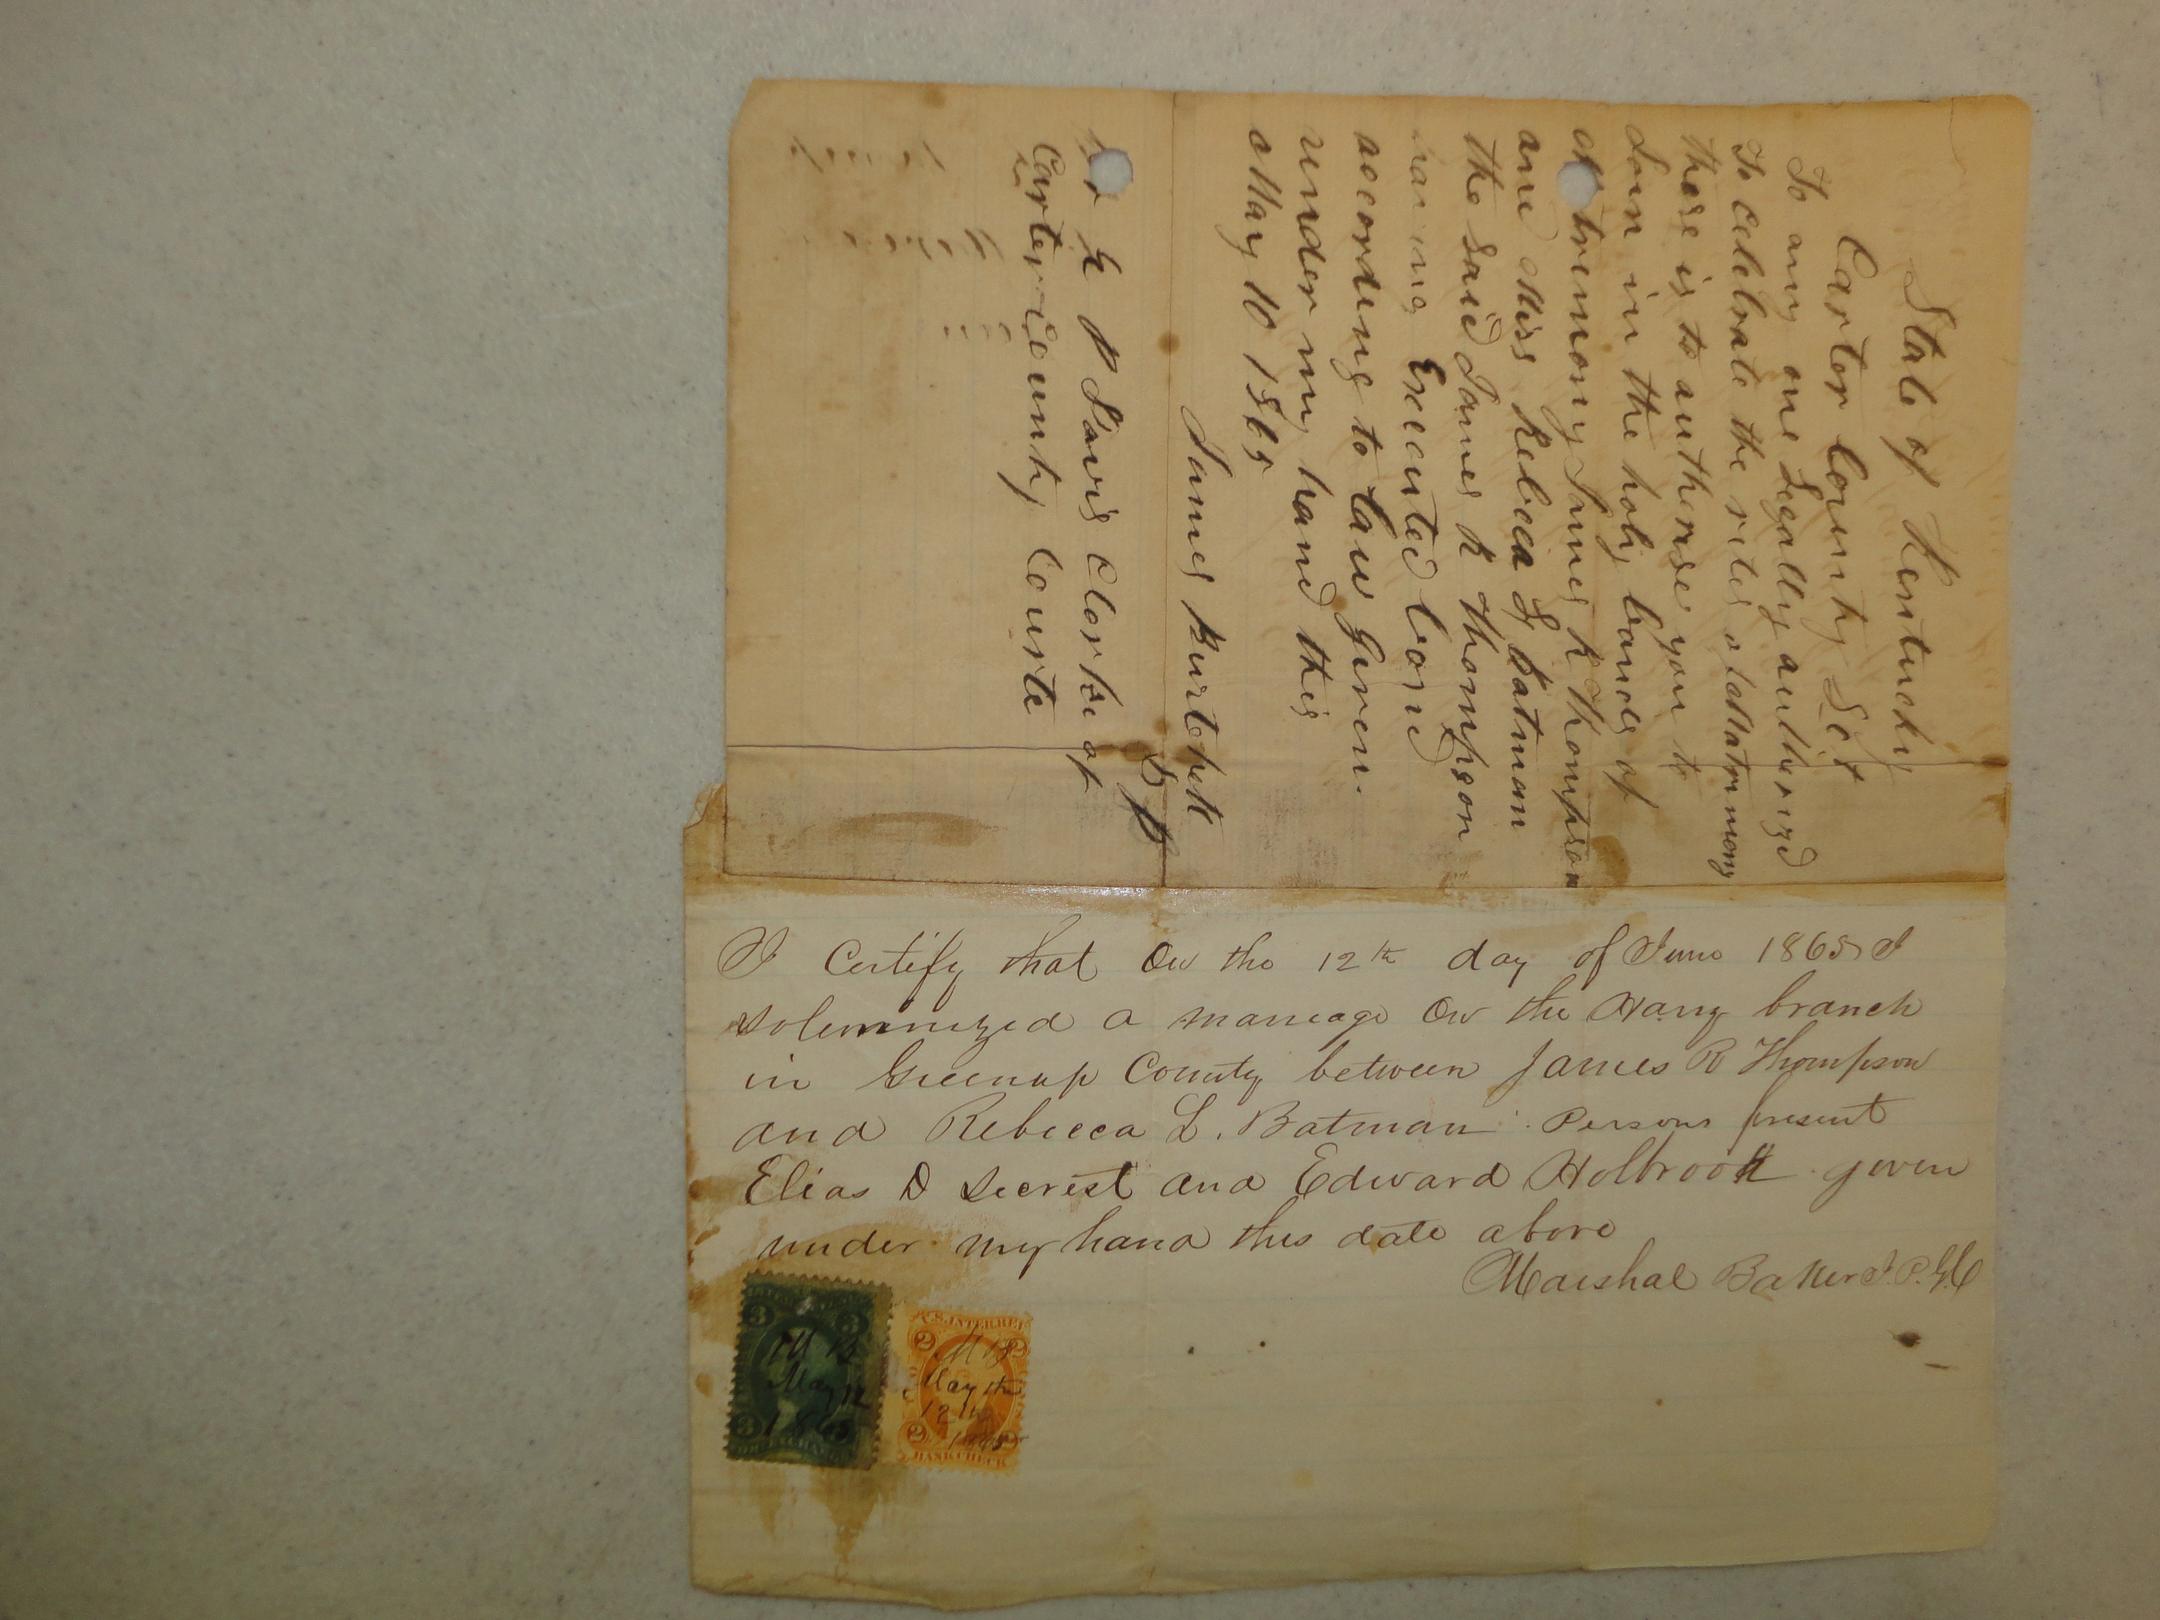 State of Kentucky
Carter County Sct
To any one Legally autherizd
To celebrate the rites of Matrimony
these is to autherise you to
Join in the holy bands of
trimony James R Thompson
and Miss Rebeca L Batman
the said James R Thompson
having Executed bond
according to law Given
under my hand this
May 10 1865
James
D P
for G P Davis Clerke of
Carter County Courte
I Certify that On the 12th day of June 1865 I
solemnized a marreage On the Hang branch
in Greenup County between James R Thompson
and Rebecca L. Batman Persons present
Elias D Secrest and Edward Holbrook given
under my hand this date above
Marshal Baker J.P.G.C
3 3
M B
May 12
1865
3 3
U.S. INTER. REV.
2 2
M B
May th
12th
1865
2 2
BANK CHECK